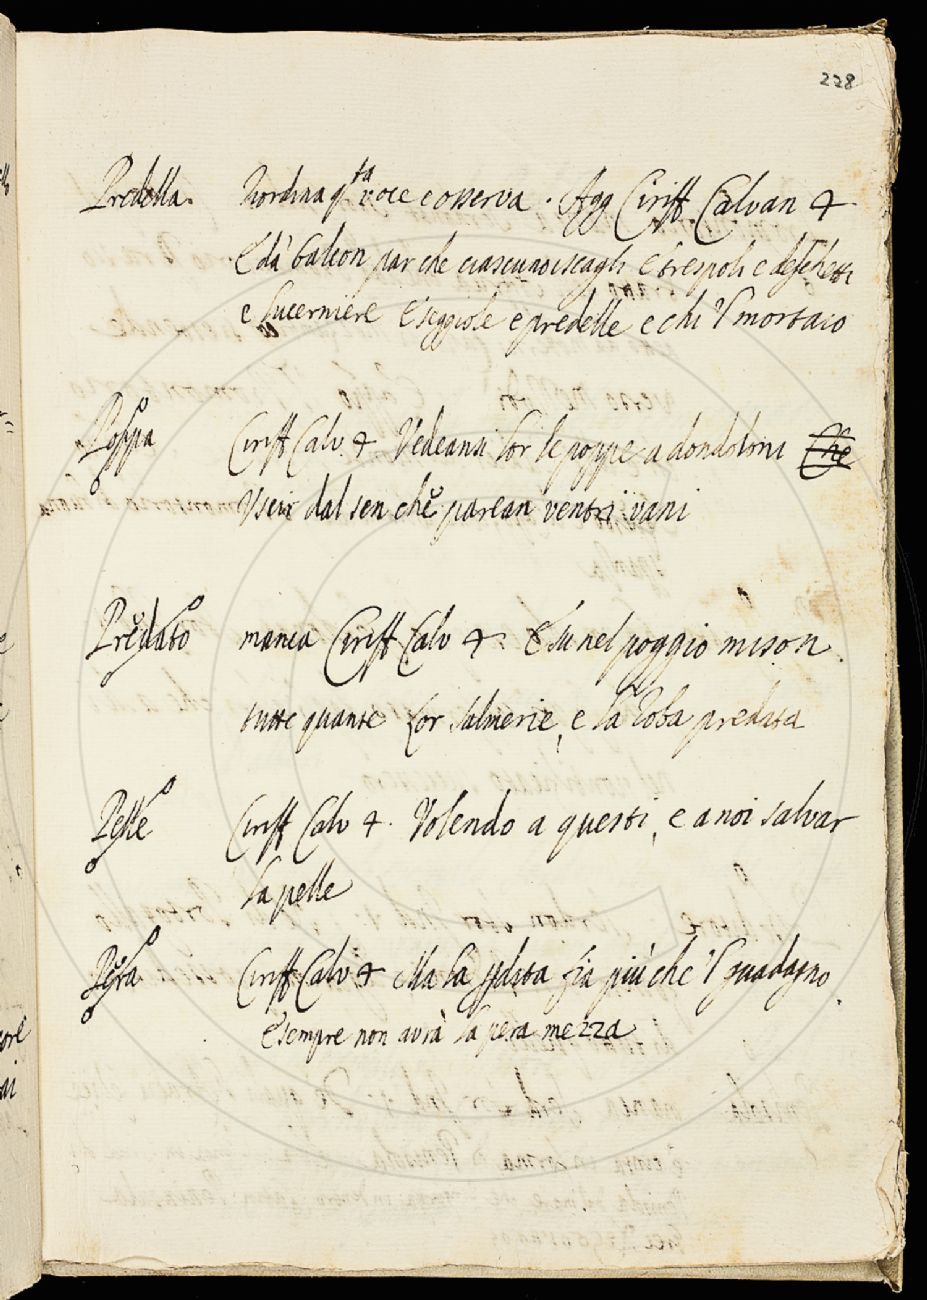 228
Predella. Riordina q.ta voce e osserva. Agg Ciriff Calvan 4.
E da balcon par che ciascuno iscagli E trespoli e deschetti
e lucerniere E seggiole e predelle e chi 'l mortaio
Poppa Ciriff Calv. 4. Vedeansi lor le poppe a dondoloni
Uscir dal sen che parean ventri vani
Predato manca Ciriff Calv 4. E su nel poggio mison
tutte quante Lor salmerie, e la roba predata
Pelle Ciriff Calv 4. Volendo a questi, e a noi salvar
la pelle
Pera Ciriff Calv 4 Ma la fia più che 'l guadagno
E sempre non avrà la pera mezza